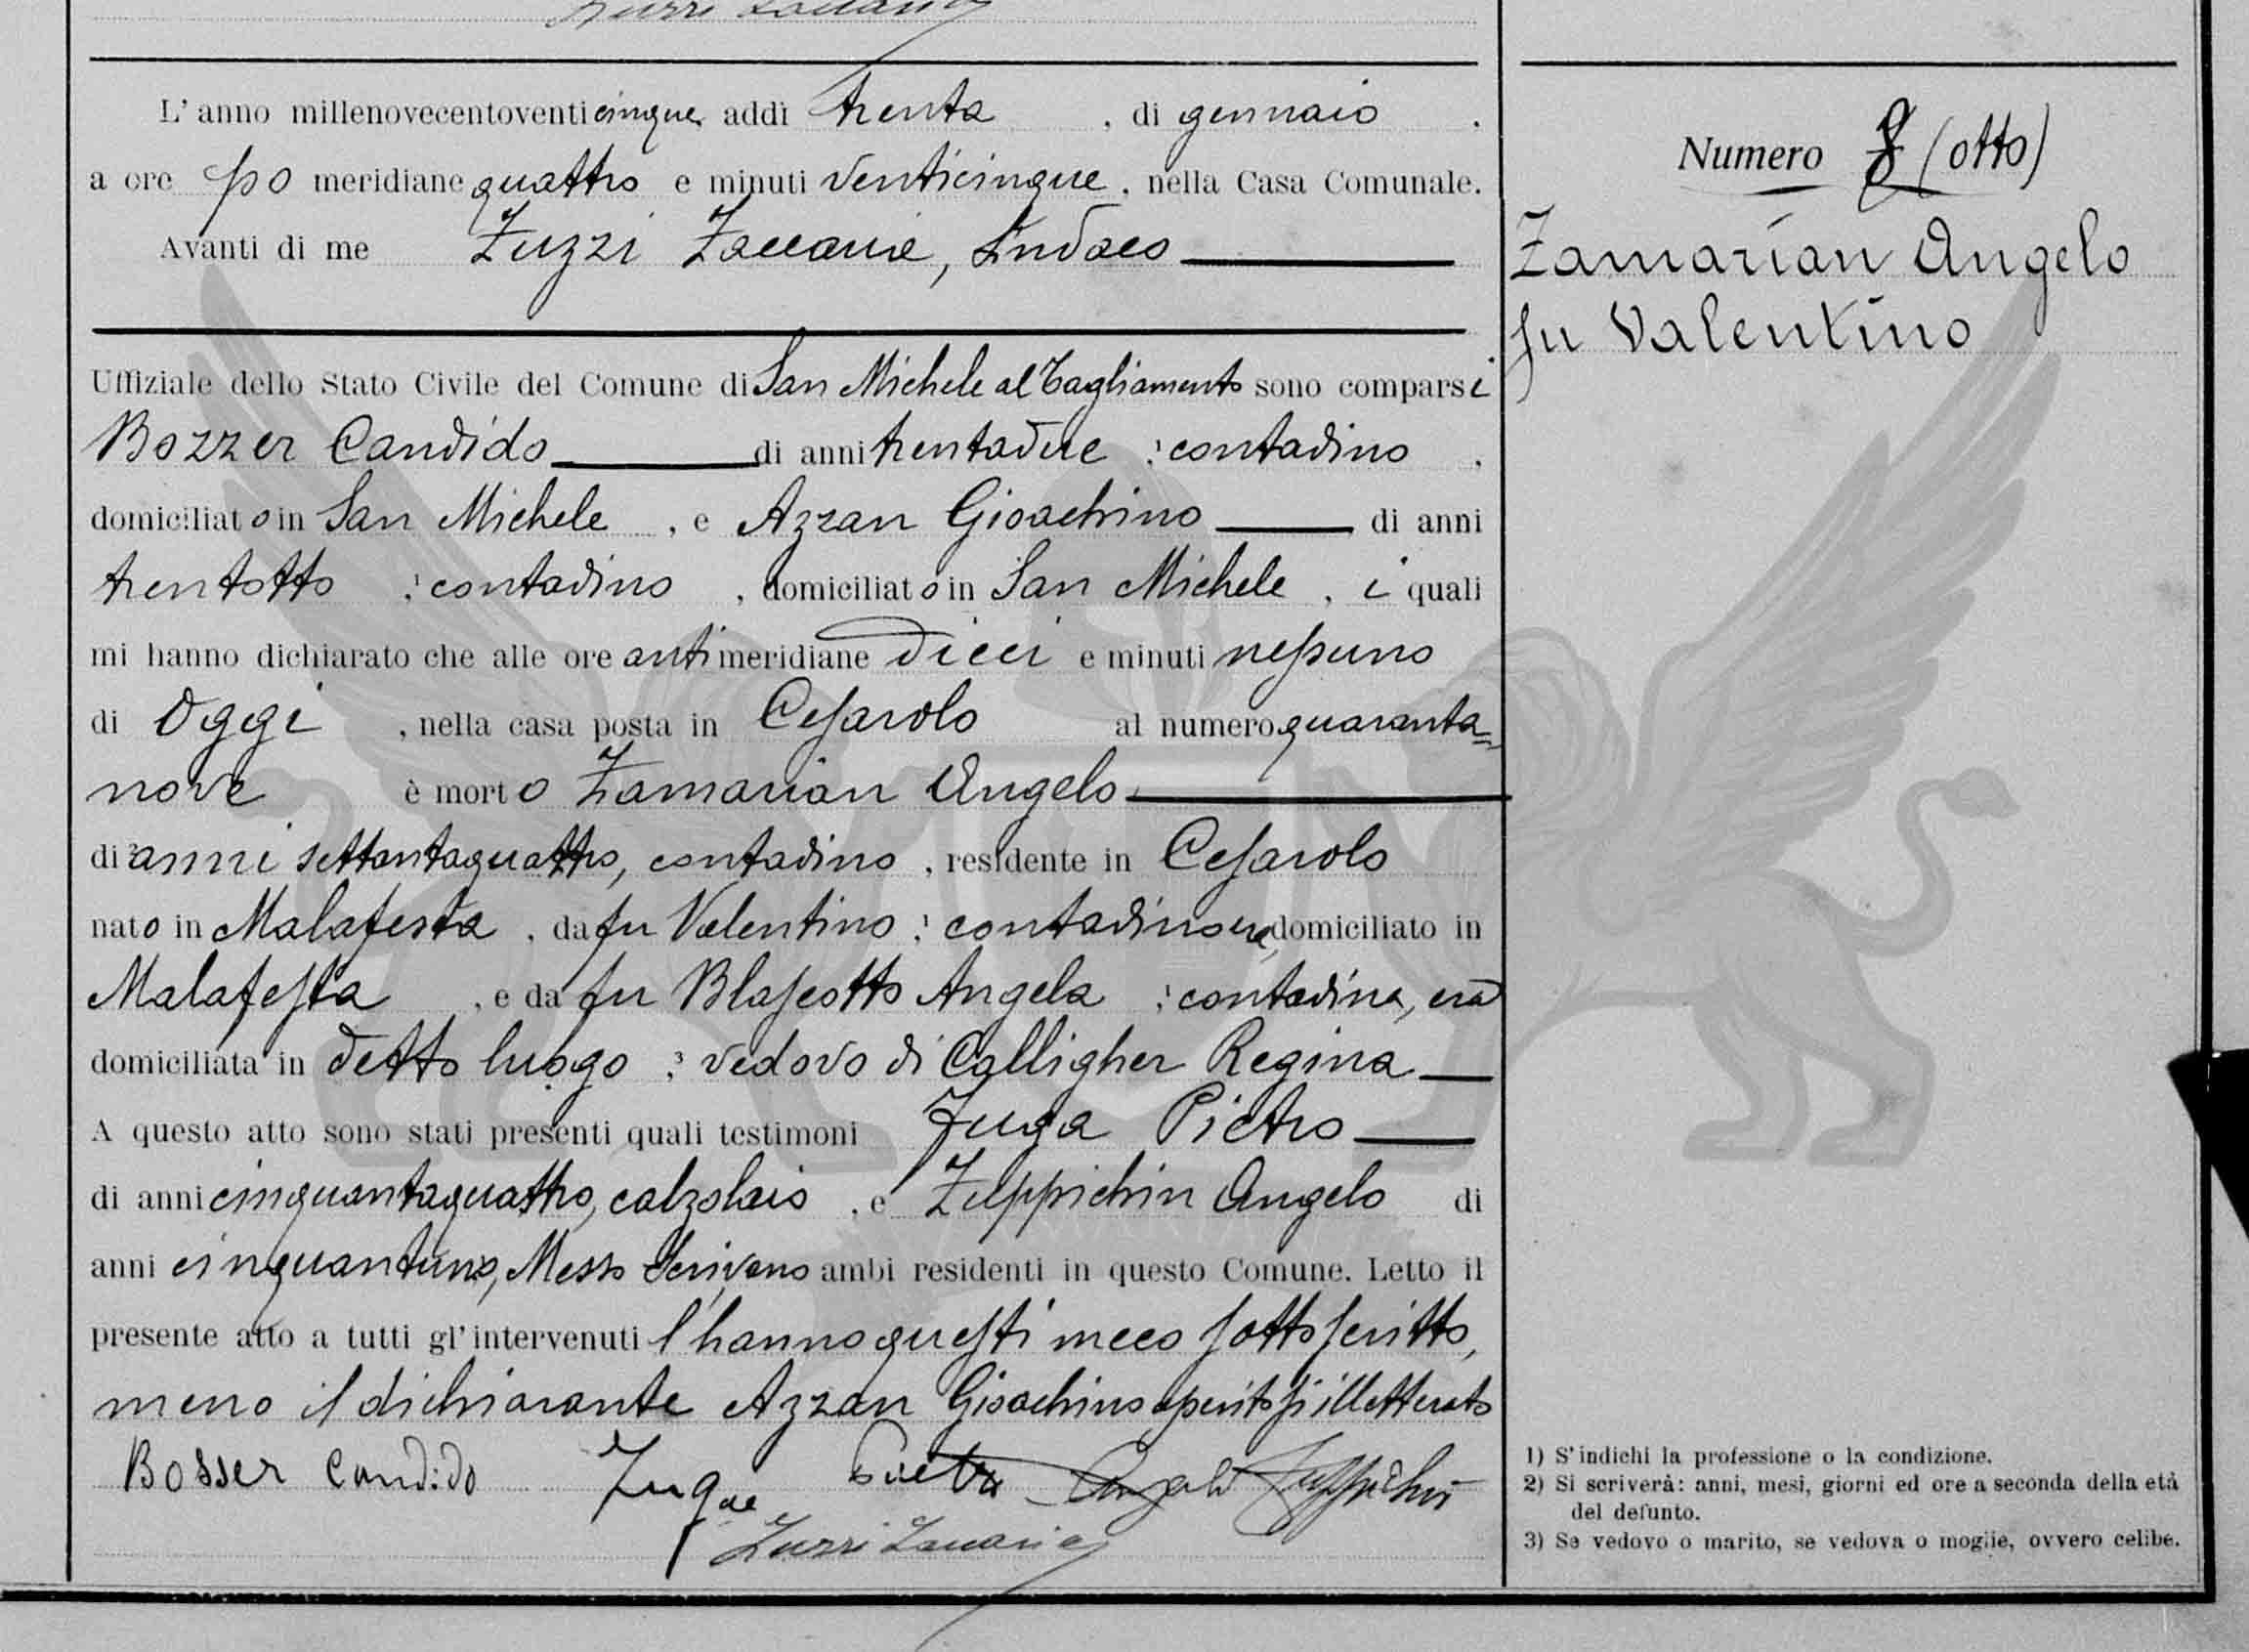 L'anno millenovecentoventicinque addì trenta, di gennaio,
a ore po meridiane quattro e minuti venticinque, nella Casa Comunale.
Avanti di me Zuzzi Zaccaria, Sindaco
Uffiziale dello Stato Civile del Comune di San Michele al Tagliamento sono comparsi
Bozzer Candido di anni trentadue ¹; contadino,
domiciliato in San Michele, e Azzan Gioachino di anni
trentotto ¹; contadino, domiciliato in San Michele, i quali
mi hanno dichiarato che alle ore antimeridiane dieci e minuti nessuno
di oggi, nella casa posta in Cesarolo al numero quaranta=
nove è morto Zamarian Angelo
di ²anni settantaquattro, contadino, residente in Cesarolo
nato in Malafesta, da fu Valentino ¹; contadino era domiciliato in
Malafesta, e da fu Blaseotto Angela ¹; contadina, era
domiciliata in detto luogo ³; vedovo di Calligher Regina
A questo atto sono stati presenti quali testimoni Zuga Pietro
di anni cinquantaquattro, calzolaio, e Zuppichin Angelo di
anni cinquantuno, Messo Scrivano ambi residenti in questo Comune. Letto il
presente atto a tutti gl'intervenuti l'hanno questi meco sottoscritto,
meno il dichiarante Azzan Gioachino perchè illetterato
Bosser Candido Zuga Pietro Angelo Zuppichin
Zuzzi Zaccaria
Numero 8 (otto)
Zamarian Angelo
fu Valentino
1) S'indichi la professione o la condizione.
2) Si scriverà: anni, mesi, giorni ed ore a seconda della età
del defunto.
3) Se vedovo o marito, se vedova o moglie, ovvero celibe.